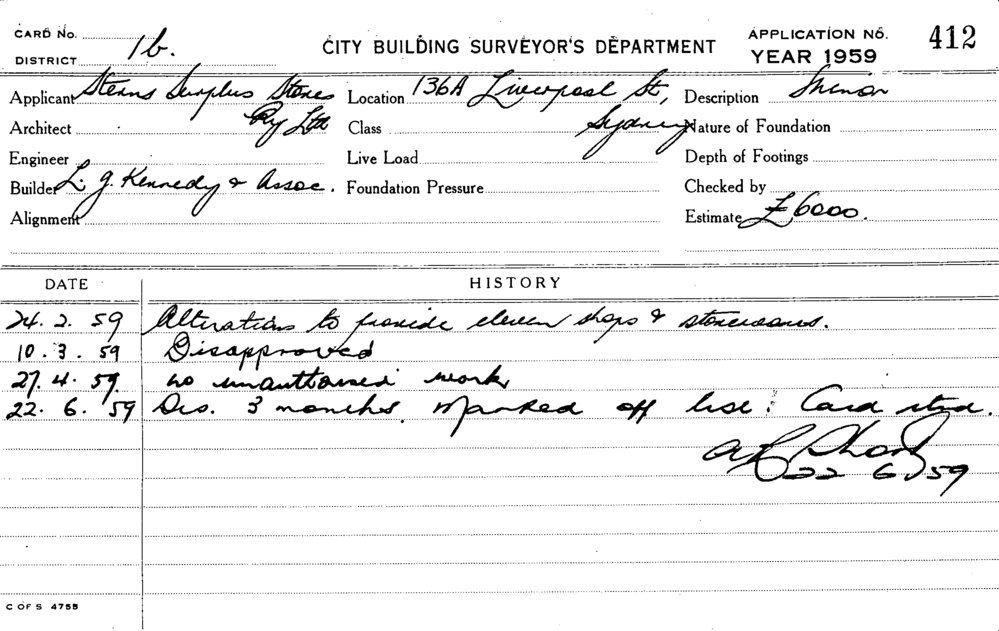 CARD NO.
DISTRICT 1b.
CITY BUILDING SURVEYOR'S DEPARTMENT
APPLICATION NO. 412
YEAR 1959
Applicant Sterns Surplus Stores Location 136A Liverpool St, Description Minor
Architect Pty Ltd Class Sydney Nature of Foundation
Engineer Live Load Depth of Footings
Builder L. G. Kennedy & Assoc. Foundation Pressure Checked by
Alignment Estimate £6000.
DATE HISTORY
24. 2. 59 Alterations to provide eleven shops & storerooms.
10. 3. 59 Disapproved
27. 4. 59 No unauthorised work
22. 6. 59 Dis. 3 months. Marked off list. Card retd.
22 6 59
C OF S 475B